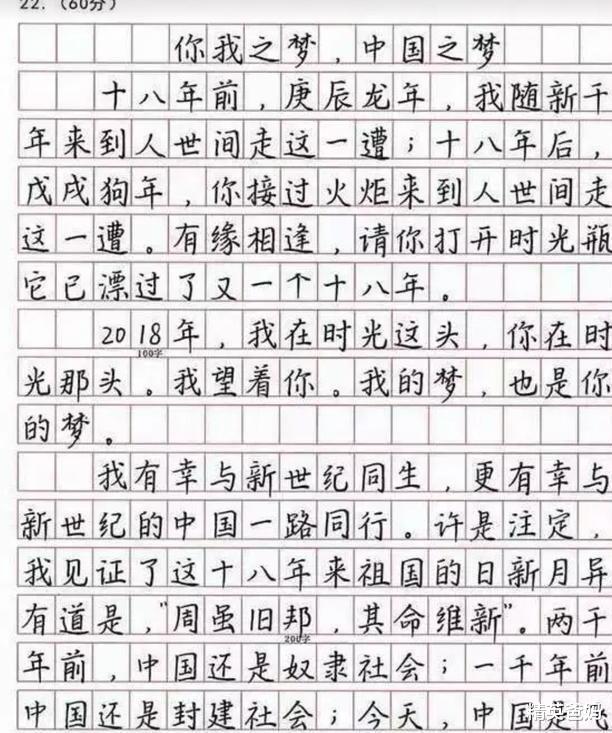 22. (60分)
你我之梦，中国之梦
十八年前，庚辰龙年，我随新千
年来到人世间走这一遭；十八年后，
戊戌狗年，你接过火炬来到人世间走
这一遭。有缘相逢，请你打开时光瓶
它已漂过了又一个十八年。
2018年，我在时光这头，你在时
100字
光那头。我望着你。我的梦，也是你
的梦。
我有幸与新世纪同生，更有幸与
新世纪的中国一路同行。许是注定，
我见证了这十八年来祖国的日新月异
有道是，“周虽旧邦，其命维新”。两千
200字
年前，中国还是奴隶社会；一千年前
中国还是封建社会；今天，中国是飞
精英爸妈